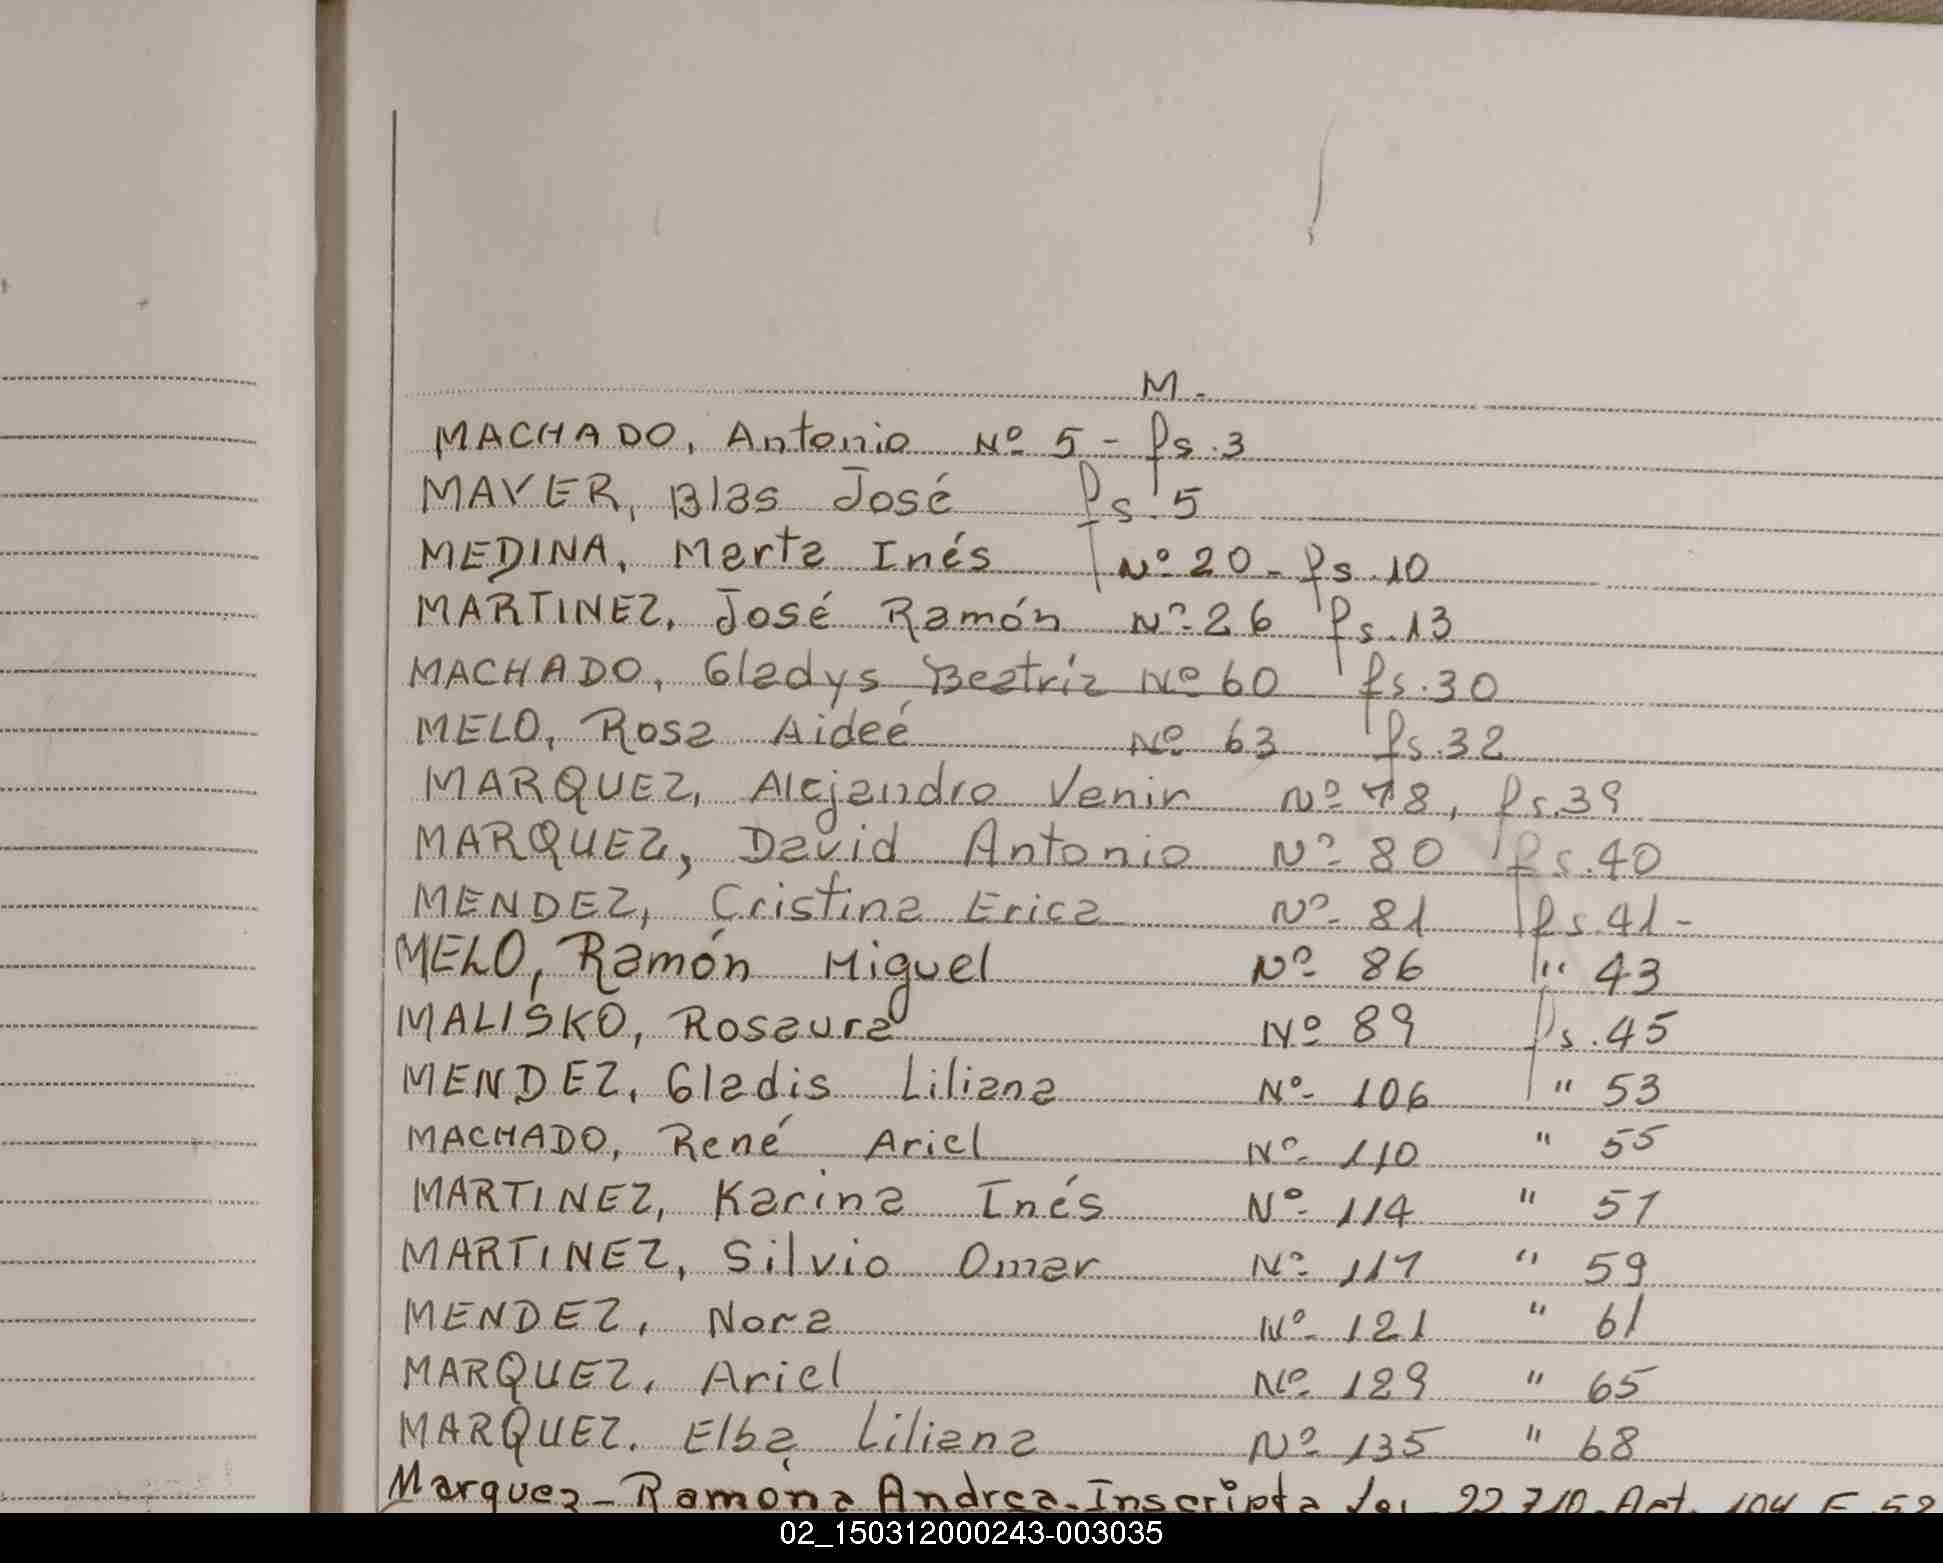 M.
MACHADO, Antonio Nº 5 - fs.3
MAVER, Blas José fs.5
MEDINA, Marta Inés Nº 20 - fs.10
MARTINEZ, José Ramón Nº 26 fs.13
MACHADO, Gladys Beatriz Nº 60 fs.30
MELO, Rosa Aideé Nº 63 fs.32
MARQUEZ, Alejandro Venir Nº 78, fs.39
MARQUEZ, David Antonio Nº 80 fs.40
MENDEZ, Cristina Erica Nº 81 fs.41-
MELO, Ramón Miguel Nº 86 " 43
MALISKO, Rosaura Nº 89 fs.45
MENDEZ, Gladis Liliana Nº 106 " 53
MACHADO, René Ariel Nº 110 " 55
MARTINEZ, Karina Inés Nº 114 " 57
MARTINEZ, Silvio Omar Nº 117 " 59
MENDEZ, Nora Nº 121 " 61
MARQUEZ, Ariel Nº 129 " 65
MARQUEZ. Elba Liliana Nº 135 " 68
Marquez - Ramona Andrea. Inscripta Ley 22.710. Act. 104 F 52
02_150312000243-003035